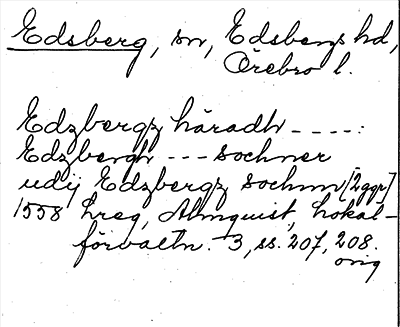 Edsberg, sn, Edsbergs hd,
Örebro l.
Edzbergz häradh - - - - :
Edzbergh - - - sochner
udij Edzbergz sochnn [2 ggr]
1558 hreg, Almquist, Lokal-
förvaltn. 3, ss. 207, 208.
orig